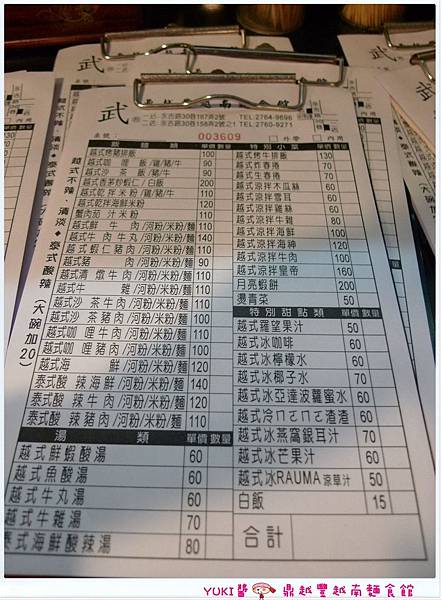 武
一店:永吉路30巷187弄2號 TEL:2764-9696
二店:永吉路30巷158弄2號之1 TEL:2760-9271
桌號: 003609 □外帶 □內用
越式不辣、清淡◆泰式酸辣(大碗加20)
飯麵類 單價 數量
越式烤豬排飯 100
越式咖哩飯/雞/豬/牛 90
越式沙茶飯/豬/牛 90
200
越式乾拌米粉/雞/豬/牛 90
越式乾拌海鮮米粉 120
蟹肉茄汁米粉 110
越式鮮牛肉/河粉/米粉/麵 110
越式牛肉牛丸/河粉/米粉/麵 140
越式蝦仁豬肉/河粉/米粉/麵 110
越式豬肉/河粉/米粉/麵 90
越式清燉牛肉/河粉/米粉/麵 110
越式牛雜/河粉/米粉/麵 110
越式沙茶牛肉/河粉/米粉/麵 110
越式沙茶豬肉/河粉/米粉/麵 100
越式咖哩牛肉/河粉/米粉/麵 110
越式咖哩豬肉/河粉/米粉/麵 100
越式海鮮/河粉/米粉/麵 120
泰式酸辣海鮮/河粉/米粉/麵 140
泰式酸辣牛肉/河粉/米粉/麵 120
泰式酸辣豬肉/河粉/米粉/麵 110
湯類 單價 數量
越式鮮蝦酸湯 60
越式魚酸湯 60
越式牛丸湯 60
越式牛雜湯 70
泰式海鮮酸辣湯 80
特別小菜 單價 數量
越式烤牛排飯 130
越式炸春捲 70
越式生春捲 70
越式涼拌木瓜絲 60
越式涼拌雪耳 60
越式涼拌雞絲 60
越式涼拌牛雜 80
越式涼拌海鮮 100
越式涼拌海神 120
越式涼拌牛肉 100
越式涼拌皇帝 160
月亮蝦餅 200
燙青菜 50
特別甜點類 單價 數量
越式羅望果汁 50
越式冰咖啡 60
越式冰檸檬水 60
越式冰椰子水 70
越式冰亞達波蘿蜜水 60
越式冷ㄇㄛㄇㄛ渣渣 60
越式冰燕窩銀耳汁 70
越式冰芒果汁 60
越式冰RAUMA涼草汁 50
白飯 15
合計
YUKI醬 鼎越豐越南麵食館